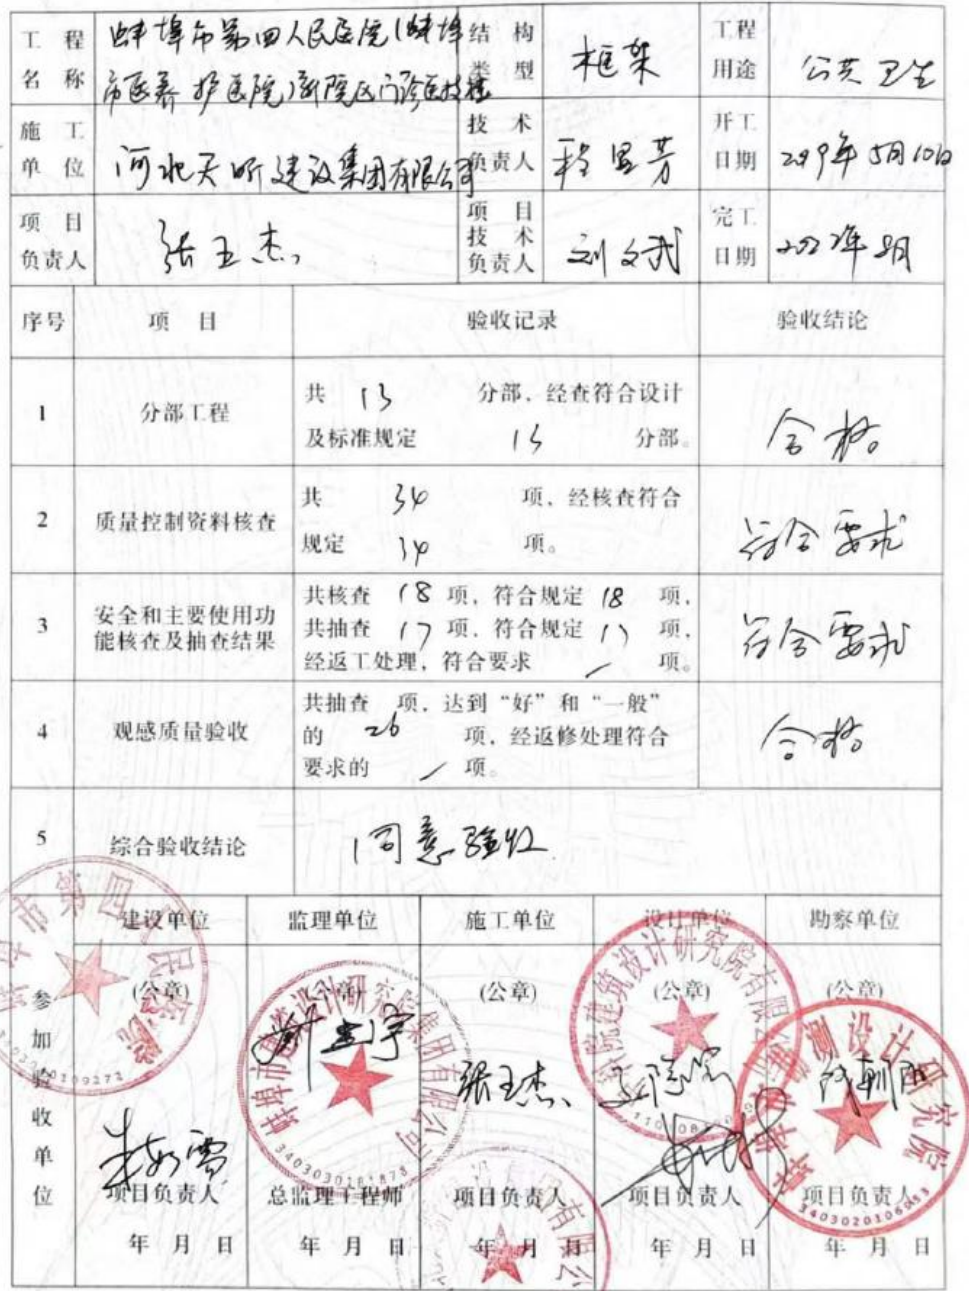 工程名称 蚌埠市第四人民医院(蚌埠市医养护医院)新院区门诊医技楼 结构类型 框架 工程用途 公共卫生
施工单位 河北天昕建设集团有限公司 技术负责人 开工日期 2019年5月10日
项目负责人 张玉杰 项目技术负责人 刘文武 完工日期
序号 项目 验收记录 验收结论
1 分部工程 合格
共 13 分部,经查符合设计
及标准规定 13 分部。
2 质量控制资料核查 符合要求
共 34 项、经核查符合
规定 34 项。
3 安全和主要使用功
能核查及抽查结果 符合要求
共核查 18 项,符合规定 18 项,
共抽查 17 项,符合规定 17 项,
经返工处理,符合要求 / 项。
4 观感质量验收 合格
共抽查 项,达到“好”和“一般”
的 26 项,经返修处理符合
要求的 / 项。
5 综合验收结论 同意验收
参加验收单位
建设单位 监理单位 施工单位 设计单位 勘察单位
(公章) (公章) (公章) (公章) (公章)
张玉杰
项目负责人 总监理工程师 项目负责人 项目负责人 项目负责人
年 月 日 年 月 日 年 月 日 年 月 日 年 月 日